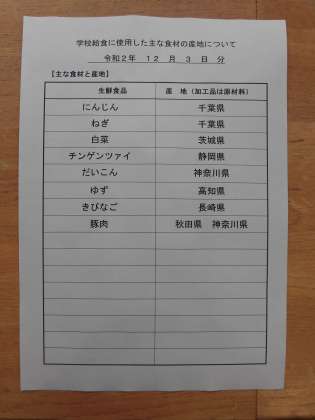 学校給食に使用した主な食材の産地について
令和2年 12 月 3 日 分
【主な食材と産地】
生鮮食品 産 地（加工品は原材料）
にんじん 千葉県
ねぎ 千葉県
白菜 茨城県
チンゲンツァイ 静岡県
だいこん 神奈川県
ゆず 高知県
きびなご 長崎県
豚肉 秋田県 神奈川県